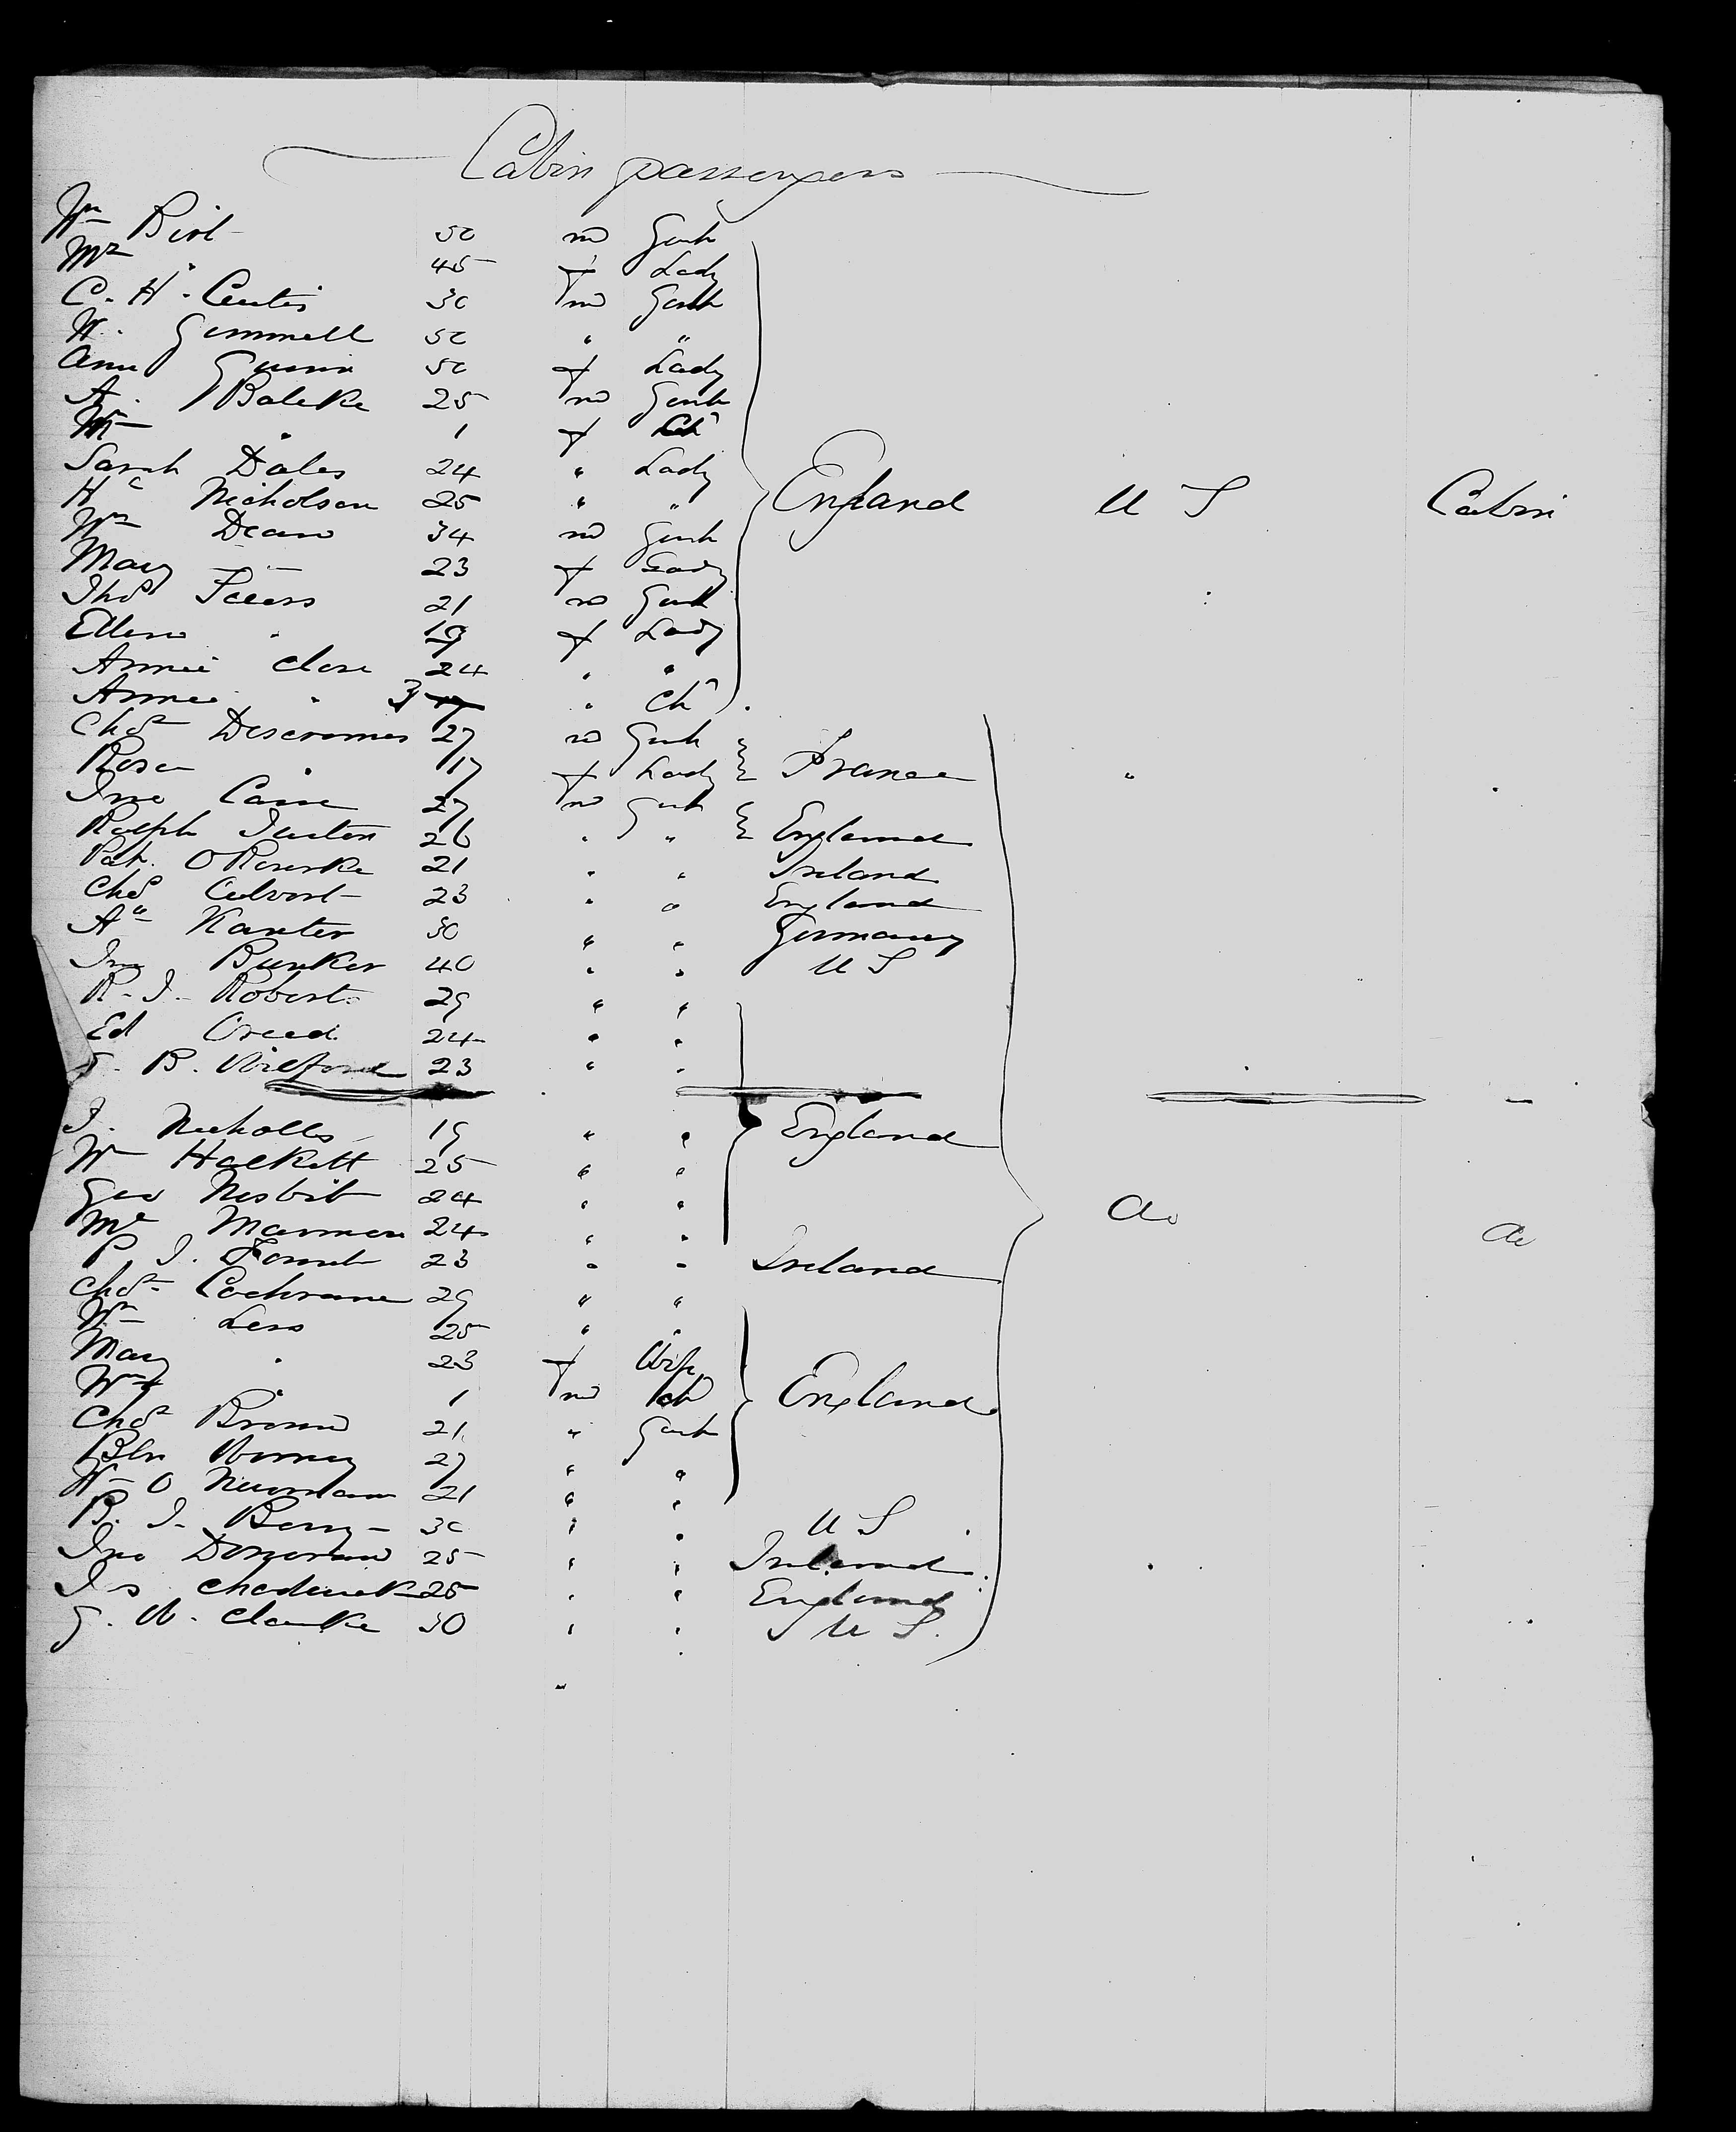 Cabin passengers
Wm Birt 50 m Gent
Mrs " 45 f Lady
C. H. Curtis 30 m Gent
W. Gemmell 50 " "
Ann Gunn 50 f Lady
A. Baleke 25 m Gent
" 1 f Ch
Sarah Dales 24 " Lady
H Nicholson 25 " " England U S Cabin
Wm Dean 34 m Gent
Mary — 23 f Lady
Thos 21 m Gent
Ellen " 19 f Lady
Annie Close 24 " "
Annie " 3 " Ch
Chas Descromes 27 m Gent
Rose " 17 f Lady France "
Jno Caine 27 m Gent
Ralph 26 " " England
Pat. O Rourke 21 " " Ireland
Chas Culvert 23 " " England
Kanter 30 " " Germany
Jno Bunker 40 " " U S
R. J. Roberts 29 " "
Ed Creed 24 " "
B. Wilford 23 " "
J. Nicholls 19 " " England
Wm Halkett 25 " "
Geo Nesbit 24 " "
24 " " Do Do
P. J. 23 " " Ireland
Chas Cochrane 29 " "
Wm Less 25 " "
Mary " 23 f Wife
Wm " 1 m Ch England
Chas Brown 21 " Gent
27 " "
Wm O Newman 21 " "
B. J. Berry 30 " " U S
Jno Donovan 25 " " Ireland
Js Chadwick 25 " " England
G. W. Clarke 30 " " U S.